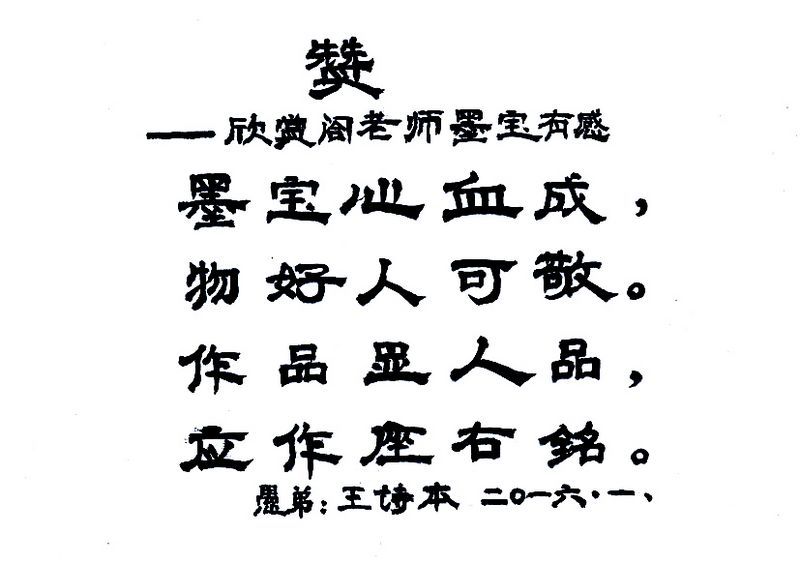 赞
——欣赏阎老师墨宝有感
墨宝心血成，
物好人可敬。
作品显人品，
应作座右銘。
愚弟：王培本 二〇一六·一、